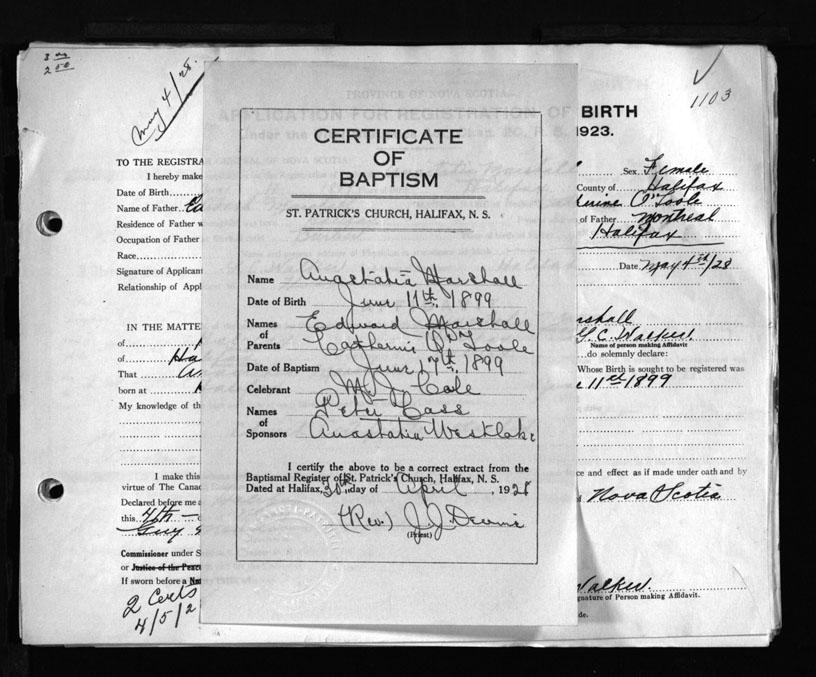 3 00
2 50
May 4/28.
1103
PROVINCE OF NOVA SCOTIA
APPLICATION FOR REGISTRATION OF BIRTH
1923.
TO THE REGISTRA
GENERAL OF NOVA SCOTIA
I hereby make
Sex Female
Date of Birth
County of Halifax
Name of Father
O'Toole
Residence of Father
of Father Montreal
Occupation of Father
Halifax
Race
Signature of Applicant
Date May 4th/28
Relationship of Appl
CERTIFICATE
OF
BAPTISM
ST. PATRICK'S CHURCH, HALIFAX, N. S.
Name Anastatia Marshall
Date of Birth June 11th, 1899
Names of Parents Edward Marshall
Catherine O'Toole
Date of Baptism June 17th, 1899
Celebrant M. J. Cole
Names of Sponsors Peter Cass
Anastatia Westlake
I certify the above to be a correct extract from the
Baptismal Register of St. Patrick's Church, Halifax, N. S.
Dated at Halifax, 30th day of April, 1928
(Rev.) J. J. Devine
(Priest)
IN THE MATTE
rshall
of
of Ha
Name of person making Affidavit
do solemnly declare:
That
Whose Birth is sought to be registered was
born at
11th 1899
My knowledge of th
I make this
ce and effect as if made under oath and by
virtue of The Canad
Declared before me a
Nova Scotia
this 4th
Commissioner under S
or Justice of the Peace
If sworn before a
Walker.
gnature of Person making Affidavit.
de.
2 Certs
4/5/2